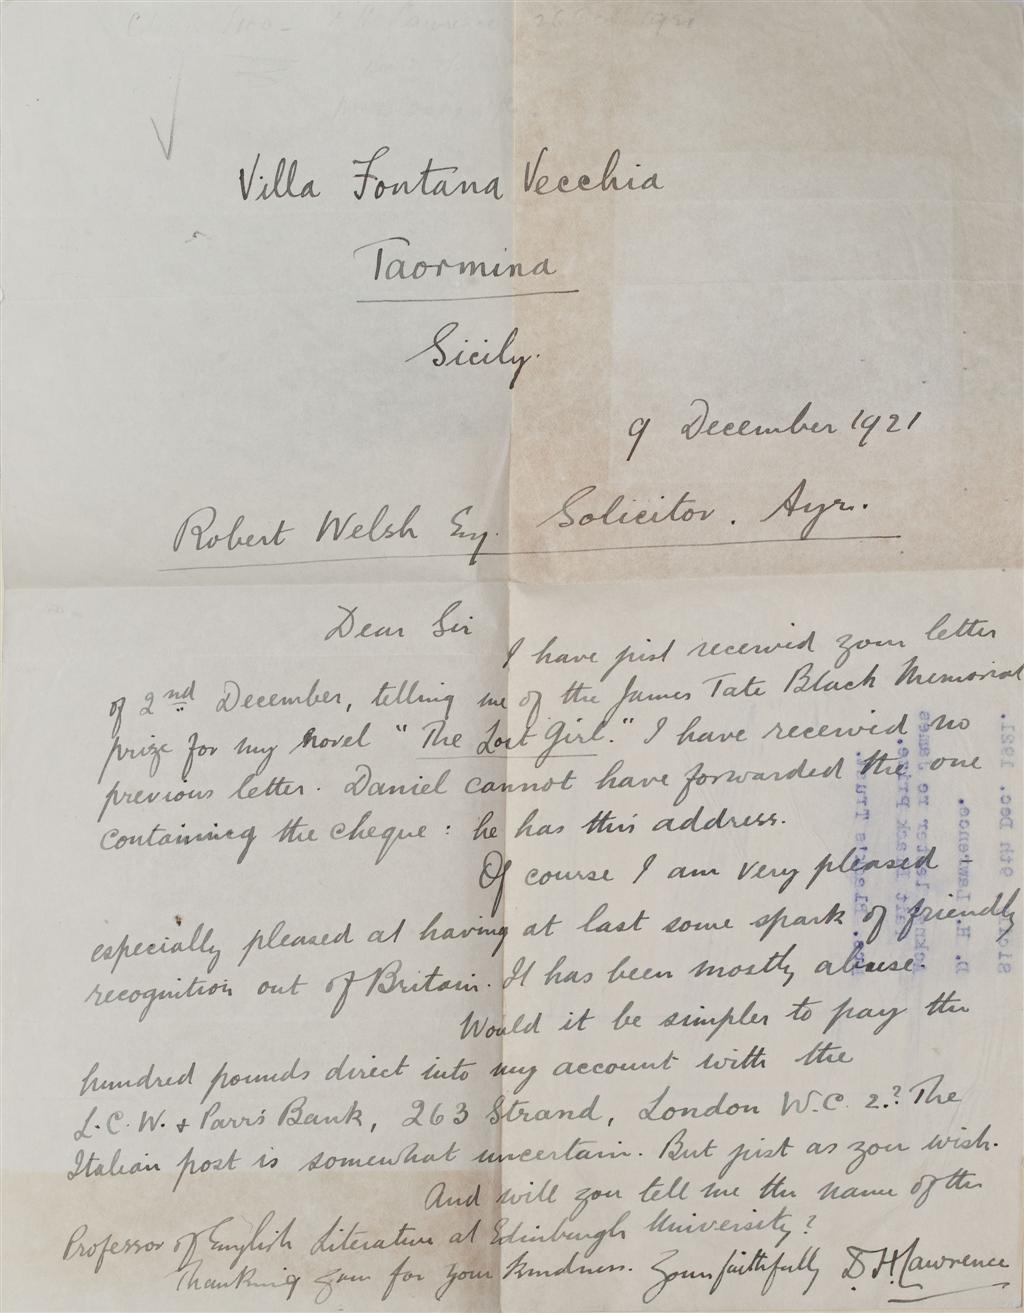 Villa Fontana Vecchia
Taormina
Sicily.
9 December 1921
Robert Welsh Esq. Solicitor. Ayr.
Dear Sir
I have just received your letter
of 2nd December, telling me of the James Tate Black Memorial
prize for my novel "The Lost Girl." I have received no
previous letter. Daniel cannot have forwarded the one
containing the cheque: he has this address.
Of course I am very pleased
especially pleased at having at last some spark of friendly
recognition out of Britain. It has been mostly abuse.
Would it be simpler to pay the
hundred pounds direct into my account with the
L.C.W. & Parr's Bank, 263 Strand, London W.C. 2.? The
Italian post is somewhat uncertain. But just as you wish.
And will you tell me the name of the
Professor of English Literature at Edinburgh University?
Thanking you for your kindness. Yours faithfully D. H. Lawrence
9th Dec. 1921.
D. H. Lawrence.
letter re James
Black Prize.
Trust.